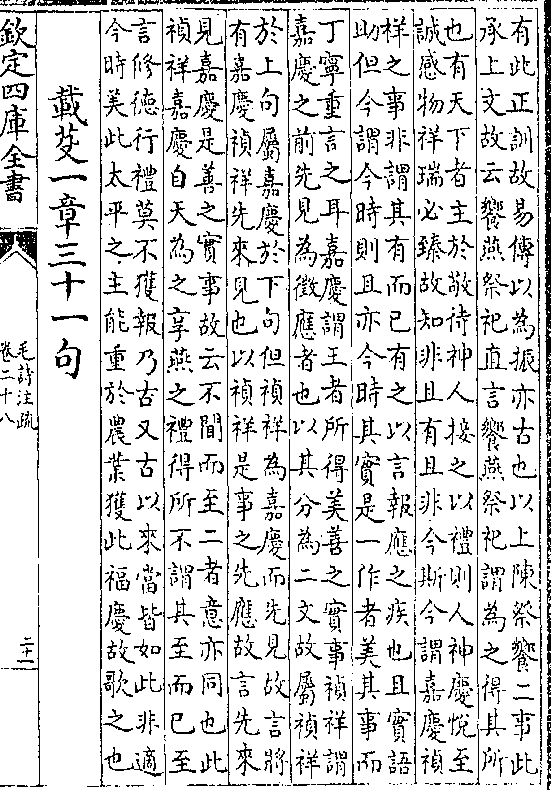 有此正訓故易傳以為振亦古也以上陳祭饗二事此
承上文故云饗燕祭祀直言饗燕祭祀謂為之得其所
也有天下者主於敬待神人接之以禮則人神慶悅至
誠感物祥瑞必臻故知非且有且非今斯今謂嘉慶禎
祥之事非謂其有而已有之以言報應之疾也且實語
助但今謂今時則且亦今時其實是一作者美其事而
丁寧重言之耳嘉慶謂王者所得美善之實事禎祥謂
嘉慶之前先見為徵應者也以其分為二文故屬禎祥
於上句屬嘉慶於下句但禎祥為嘉慶而先見故言將
有嘉慶禎祥先來見也以禎祥是事之先應故言先來
見嘉慶是善之實事故云不聞而至二者意亦同也此
禎祥嘉慶自天為之享燕之禮得所不謂其至而已至
言修德行禮莫不獲報乃古又古以來當皆如此非適
今時美此太平之主能重於農業獲此福慶故歌之也
載芟一章三十一句
欽定四庫全書
毛詩注疏
卷二十八
二十一